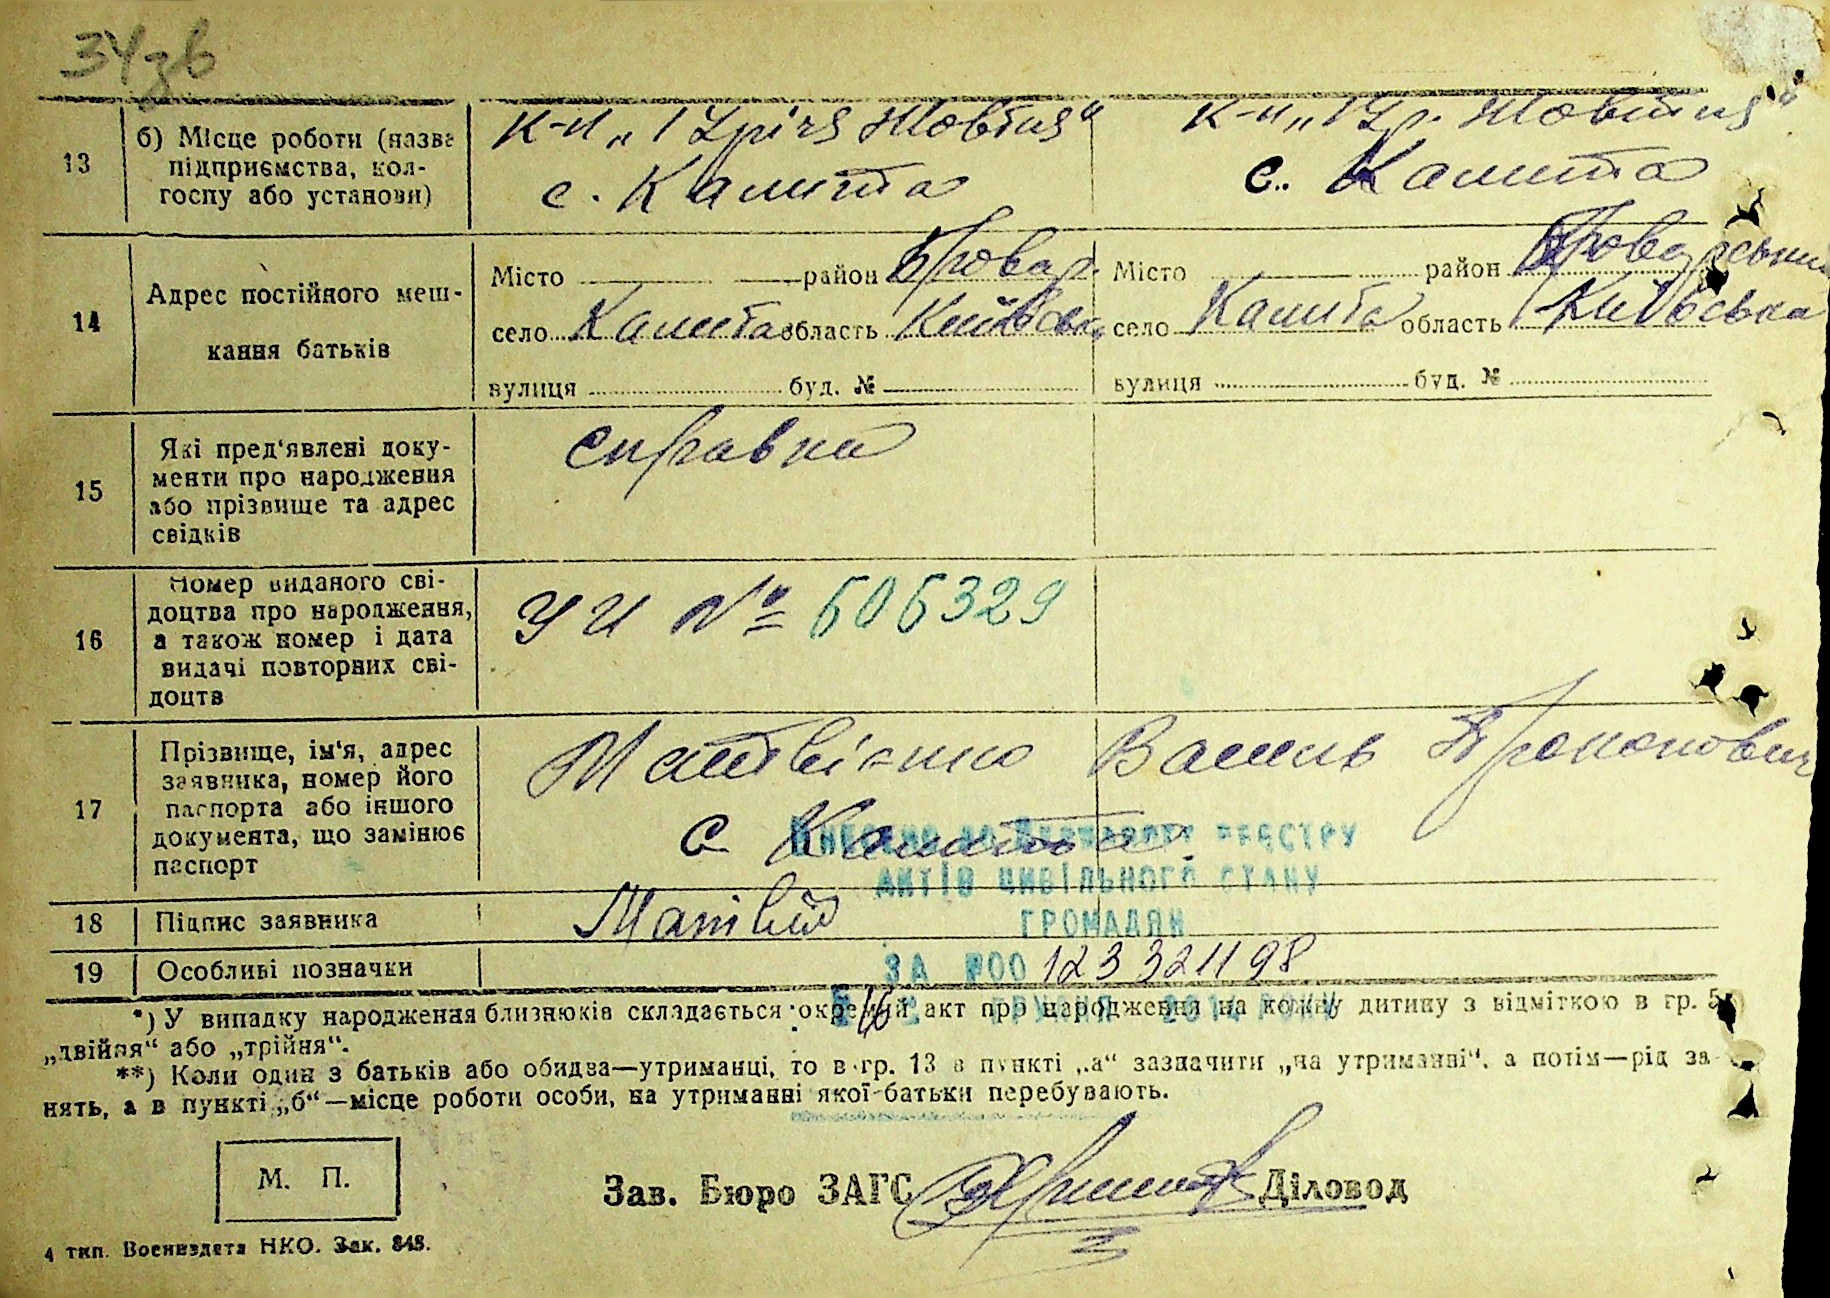 34зв
13
б) Місце роботи (назва
підприємства, кол-
госпу або установи)
К-п „17 річя Жовтня“
с. Калита
К-п „17 р. Жовтня“
с. Калита
14
Адрес постійного меш-
кання батьків
Місто район Бровар.
село Калита область Київська
вулиця буд. №
Місто район Броварський
село Калита область Київська
вулиця буд. №
15
Які пред'явлені доку-
менти про народження
або прізвище та адрес
свідків
справка
16
Номер виданого сві-
доцтва про народження,
а також номер і дата
видачі повторних сві-
доцтв
УИ № 606329
17
Прізвище, ім'я, адрес
заявника, номер його
паспорта або іншого
документа, що замінює
паспорт
Матвієнко Василь Прокопович
с Калита.
Внесено до Державного реєстру
актів цивільного стану
громадян
18
Підпис заявника
Матвій
19
Особливі позначки
ЗА №00 123321198
*) У випадку народження близнюків складається окремий акт про народження на кожну дитину з відміткою в гр. 5
„двійня“ або „трійня“.
**) Коли один з батьків або обидва—утриманці, то в гр. 13 в пункті „а“ зазначити „на утриманні“, а потім—рід за-
нять, а в пункті „б“—місце роботи особи, на утриманні якої батьки перебувають.
М. П.
Зав. Бюро ЗАГС
Діловод
4 тип. Воениздата НКО. Зак. 848.